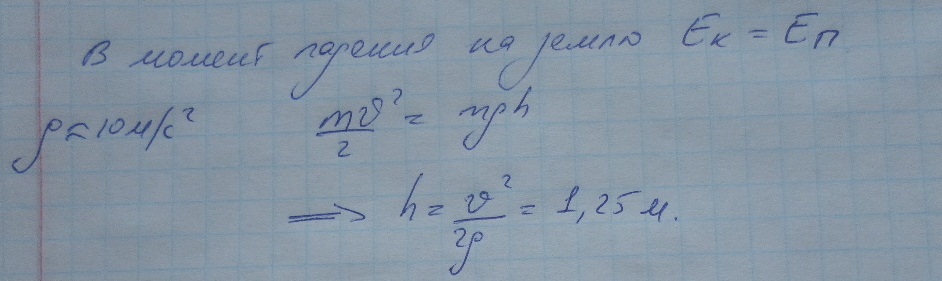 В момент падения на землю Eк = Eп
g = 10 м/с² mv²/2 = mgh
=> h = v²/2g = 1,25 м.